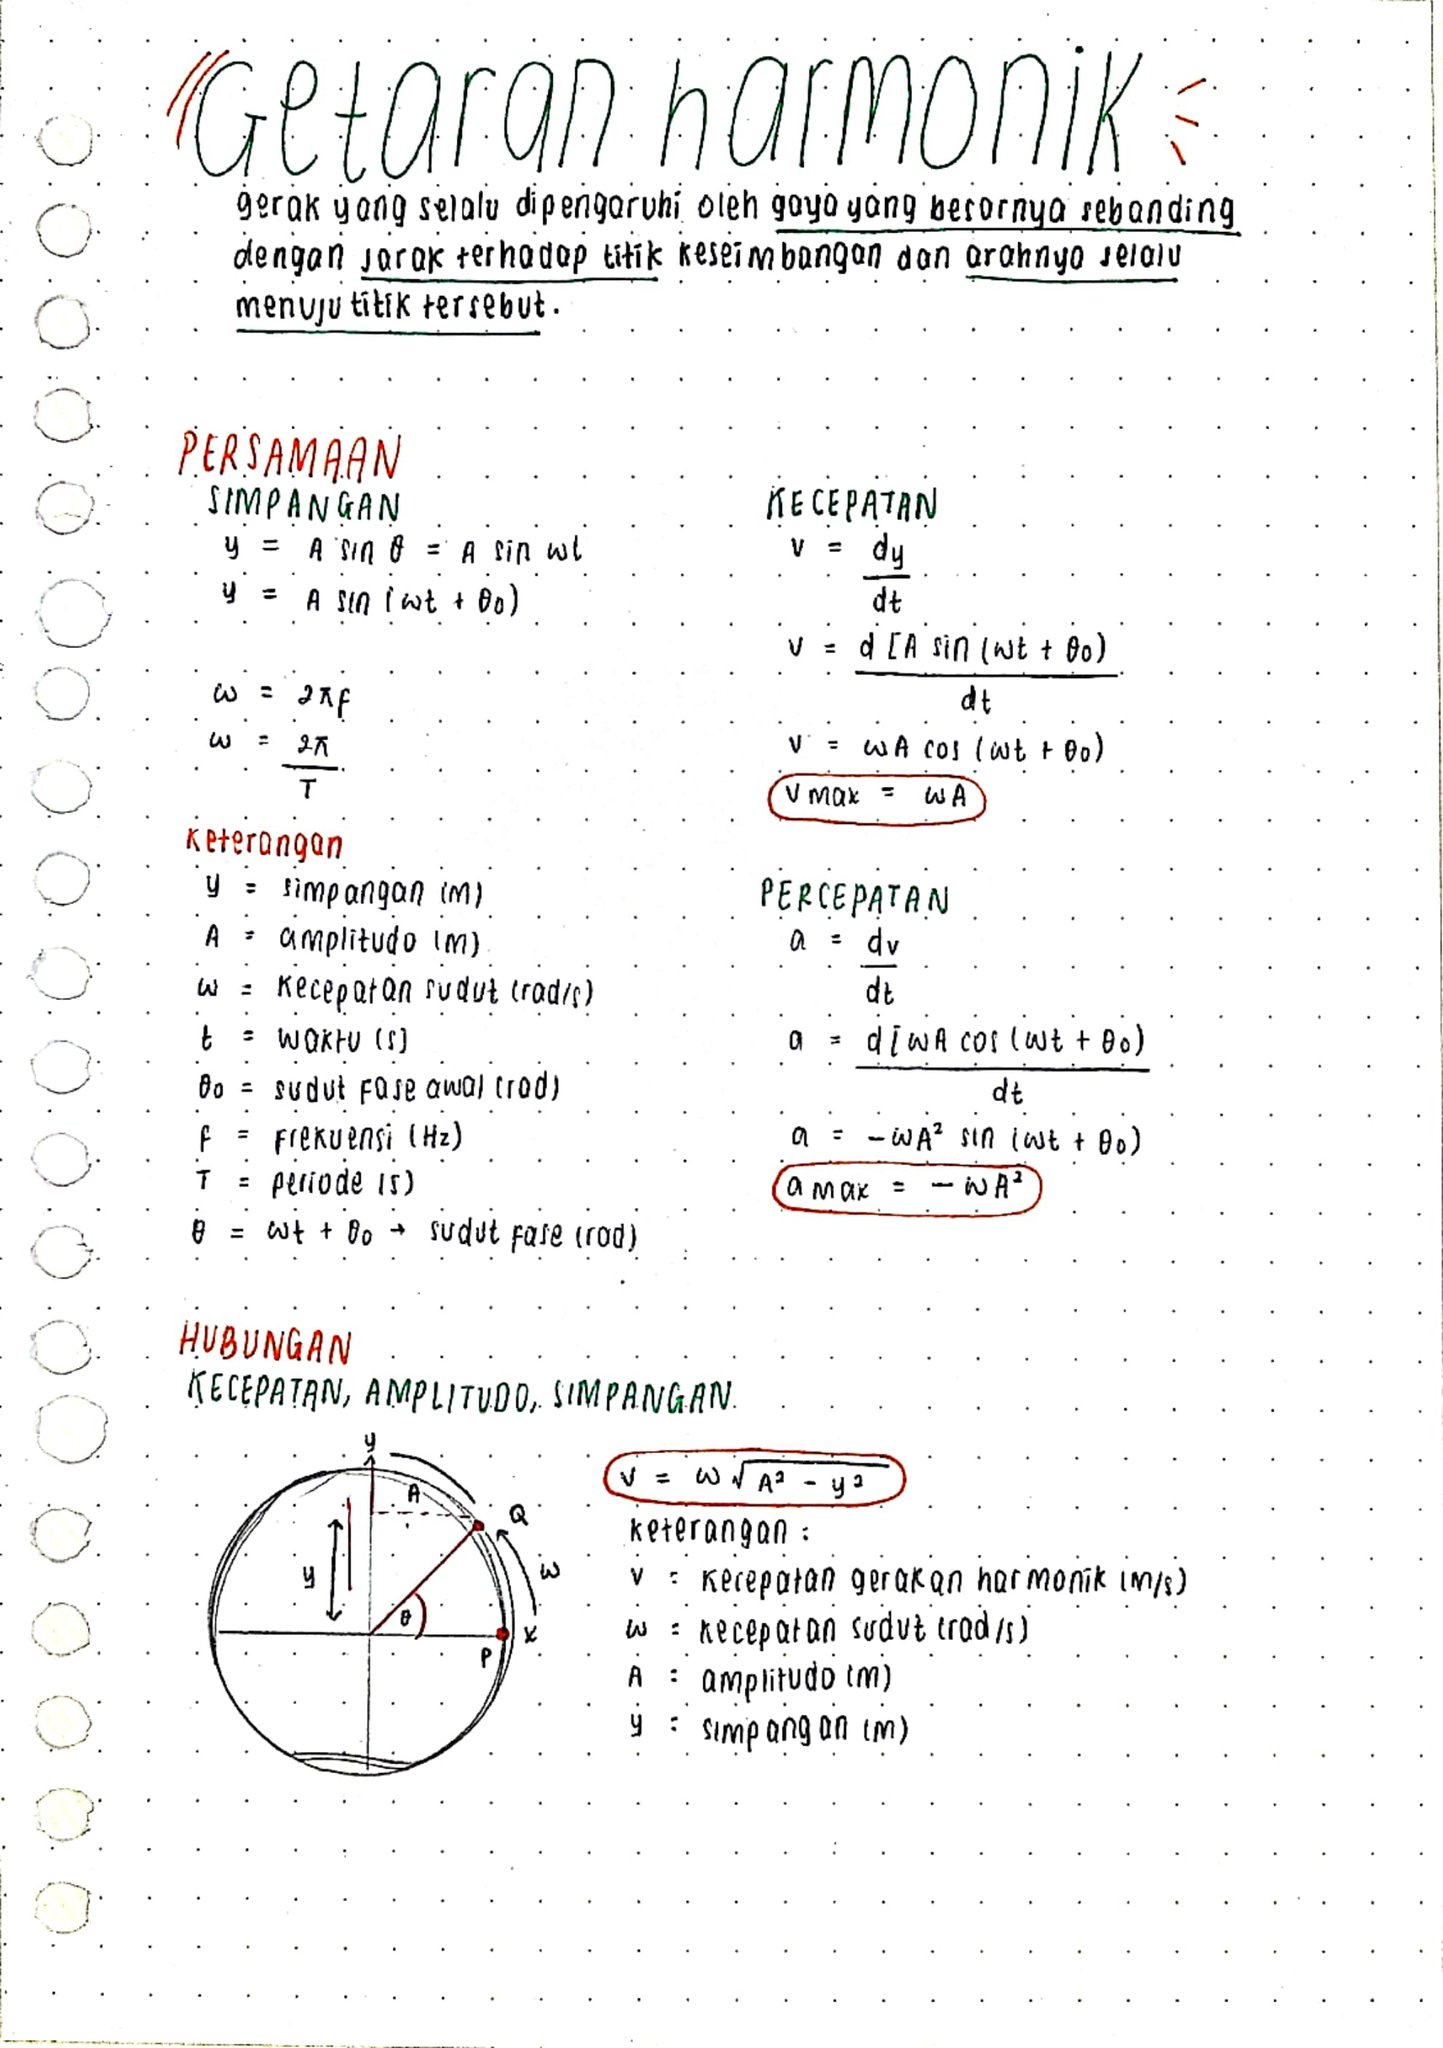 Getaran harmonik
gerak yang selalu dipengaruhi oleh gaya yang besarnya sebanding
dengan jarak terhadap titik keseimbangan dan arahnya selalu
menuju titik tersebut.
PERSAMAAN
SIMPANGAN
y = A sin θ = A sin ωt
y = A sin (ωt + θ0)
ω = 2πf
ω = 2π
T
Keterangan
y = simpangan (m)
A = amplitudo (m)
ω = kecepatan sudut (rad/s)
t = waktu (s)
θ0 = sudut fase awal (rad)
f = frekuensi (Hz)
T = periode (s)
θ = ωt + θ0 → sudut fase (rad)
KECEPATAN
v = dy
dt
v = d [A sin (ωt + θ0)
dt
v = ωA cos (ωt + θ0)
v max = ωA
PERCEPATAN
a = dv
dt
a = d [ωA cos (ωt + θ0)
dt
a = -ωA² sin (ωt + θ0)
a max = - ωA²
HUBUNGAN
KECEPATAN, AMPLITUDO, SIMPANGAN
y
A
Q
y
ω
θ
x
P
v = ω√A² - y²
keterangan :
v = kecepatan gerakan harmonik (m/s)
ω = kecepatan sudut (rad/s)
A : amplitudo (m)
y : simpangan (m)